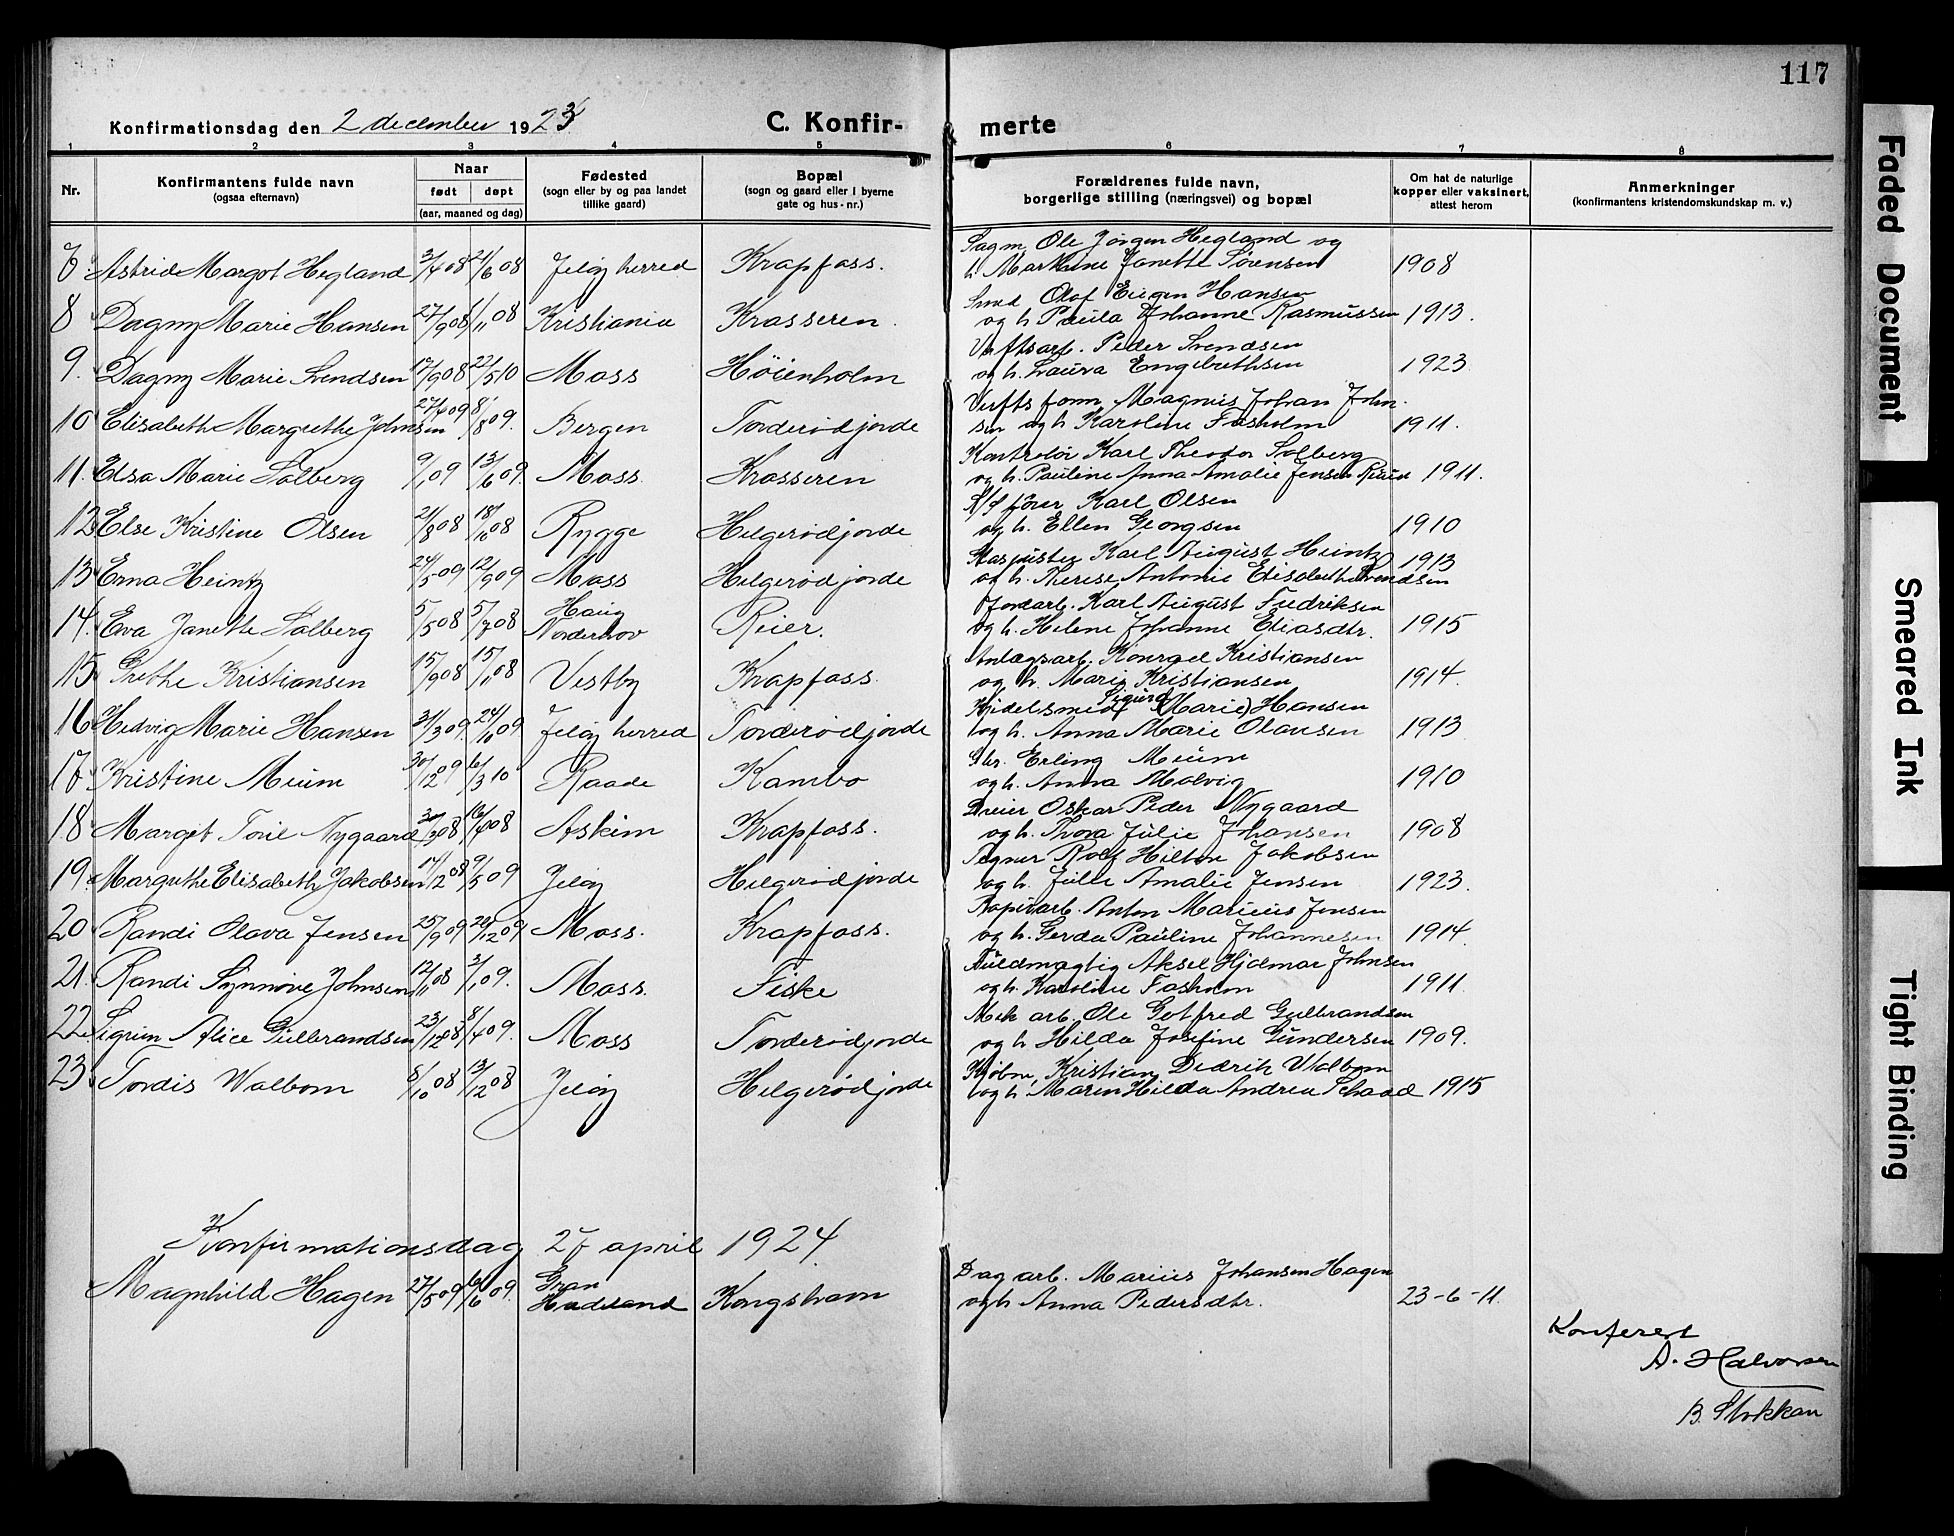 117
Konfirmationsdag den 2 december 1923
C. Konfir-
merte
1 2 3 4 5 6 7 8
Nr.
Konfirmantens fulde navn
(ogsaa efternavn)
Naar
født døpt
(aar, maaned og dag)
Fødested
(sogn eller by og paa landet
tillike gaard)
Bopæl
(sogn og gaard eller i byerne
gate og hus-nr.)
Forældrenes fulde navn,
borgerlige stilling (næringsvei) og bopæl
Om hat de naturlige
kopper eller vaksinert,
attest herom
Anmerkninger
(konfirmantens kristendomskundskap m. v.)
Sagm. Ole Jørgen Hegland og
7 Astrid Margot Hegland 3/4 08 21/6 08 Jeløy herred Krapfoss. h. Martine Janette Sørensen 1908
Smed Olaf Eugen Hansen
8 Dagny Marie Hansen 27/9 08 1/11 08 Kristiania Krosseren. og h. Paula Johanne Rasmussen 1913.
Verftsarb. Peder Svendsen
9. Dagny Marie Svendsen 17/9 08 22/5 10 Moss Høienholm og h. Laura Engebrethsen 1923
Verfts form. Magnus Johan John-
10 Elisabeth Margrethe Johnsen 27/4 09 8/8 09. Bergen Torderødjorde sen og h. Karoline Fasholm 1911.
Kontrolør Karl Theodor Solberg
11. Elsa Marie Solberg 9/1 09 13/6 09. Moss. Krosseren og h. Pauline Anna Amalie Jensen Ruud 1911.
fører Karl Olsen
12 Else Kristine Olsen 21/8 08 18/10 08 Rygge Helgerødjorde og h. Ellen Georgsen 1910
Karl August Heintz 1913
13 Erna Heintz 24/5 09 12/9 09 Moss Helgerødjorde og h. Therese Antonie Elisabeth Svendsen
Jordarb. Karl August Fredriksen
14. Eva Janette Solberg 5/5 08 5/7 08 Haug Norderhov Reier. og h. Helene Johanne Eliasdtr. 1915
Anlægsarb. Konrad Kristiansen
15 Grethe Kristiansen 15/9 08 15/11 08 Vestby Krapfoss. og h. Marie Kristiansen 1914.
Kjedelsmed Sigurd (Marie) Hansen
16 Hedvig Marie Hansen 31/3 09. 24/10 09 Jeløy herred Torderødjorde og h. Anna Marie Olausen 1913
Erling Meum
17 Kristine Meum 30/12 09 6/3 10 Raade Kambo og h. Anna Molvig 1910
Dreier Oskar Peder Nygaard
18. Marget Toril Nygaard 08 08 Askim Krapfoss. og h. Thora Julie Johansen 1908
Tegner Rolf Hilton Jakobsen
19. Margrethe Elisabeth Jakobsen 17/12 08 9/5 09 Jeløy Helgerødjorde og h. Julie Amalie Jensen 1923.
Papirarb. Anton Marius Jensen
20 Randi Olava Jensen 25/9 09 26/12 09 Moss. Krapfoss. og h. Gerda Pauline Johannesen 1914.
Fuldmægtig Aksel Hjalmar Johnsen
21. Randi Synnøve Johnsen 12/11 08 3/1 09. Moss. Fiske og h. Karoline Fasholm 1911
Mek arb. Ole Gotfred Gulbrandsen
22. Sigrun Alice Gulbrandsen 23/12 08 8/4 09. Moss Torderødjorde og h Hilda Josefine Gundersen 1909.
Kjøbm. Kristian Dedrik Walbom
23. Tordis Walbom 8/10 08 13/12 08 Jeløy Helgerødjorde og h. Maren Hilda Andrea Schaad 1915
Konfirmationsdag 27 april 1924.
Dagarb. Marius Johansen Hagen
Magnhild Hagen 27/5 09 6/6 09. Gran Hadeland Kongshavn og h Anna Pedersdtr. 23-6-11.
Konferert
A. Halvorsen
B. Stokkan
Faded Document
Smeared Ink
Tight Binding